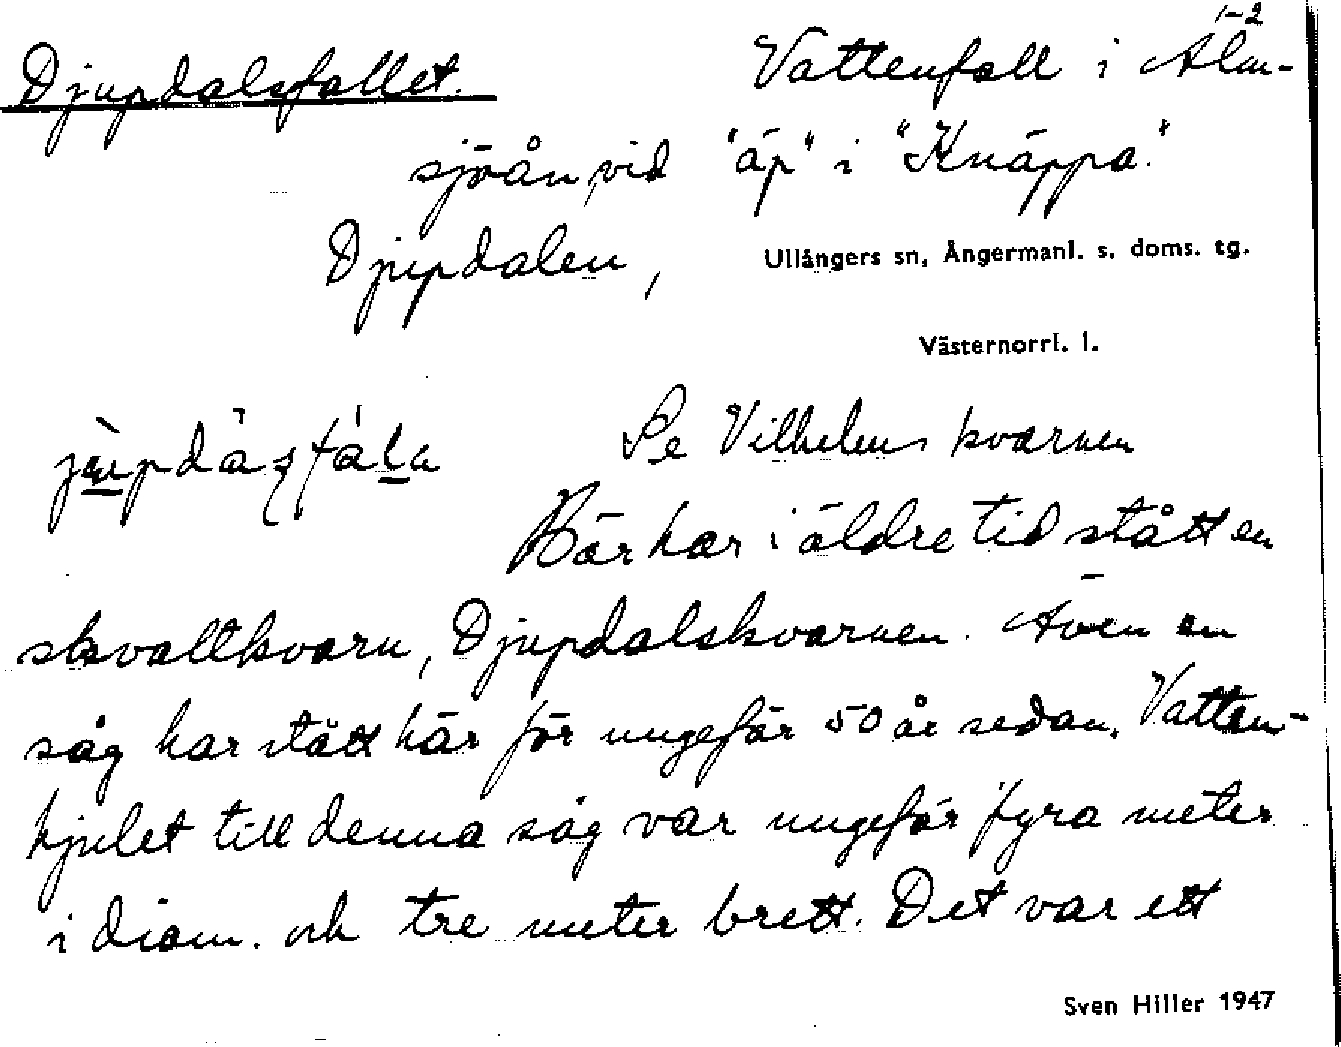 1-2
Djupdalsfallet. Vattenfall i Älm-
sjöån, vid "äp" i "Knäppa."
Djupdalen,
Ullångers sn, Ångermanl. s. doms. tg.
Västernorrl. l.
Se Vilhelms kvarnen
Här har i äldre tid stått en
skvaltkvarn, Djupdalskvarnen. Även en
såg har stått här för ungefär 50 år sedan. Vatten-
hjulet till denna såg var ungefär fyra meter
i diam. och tre meter brett. Det var ett
Sven Hiller 1947